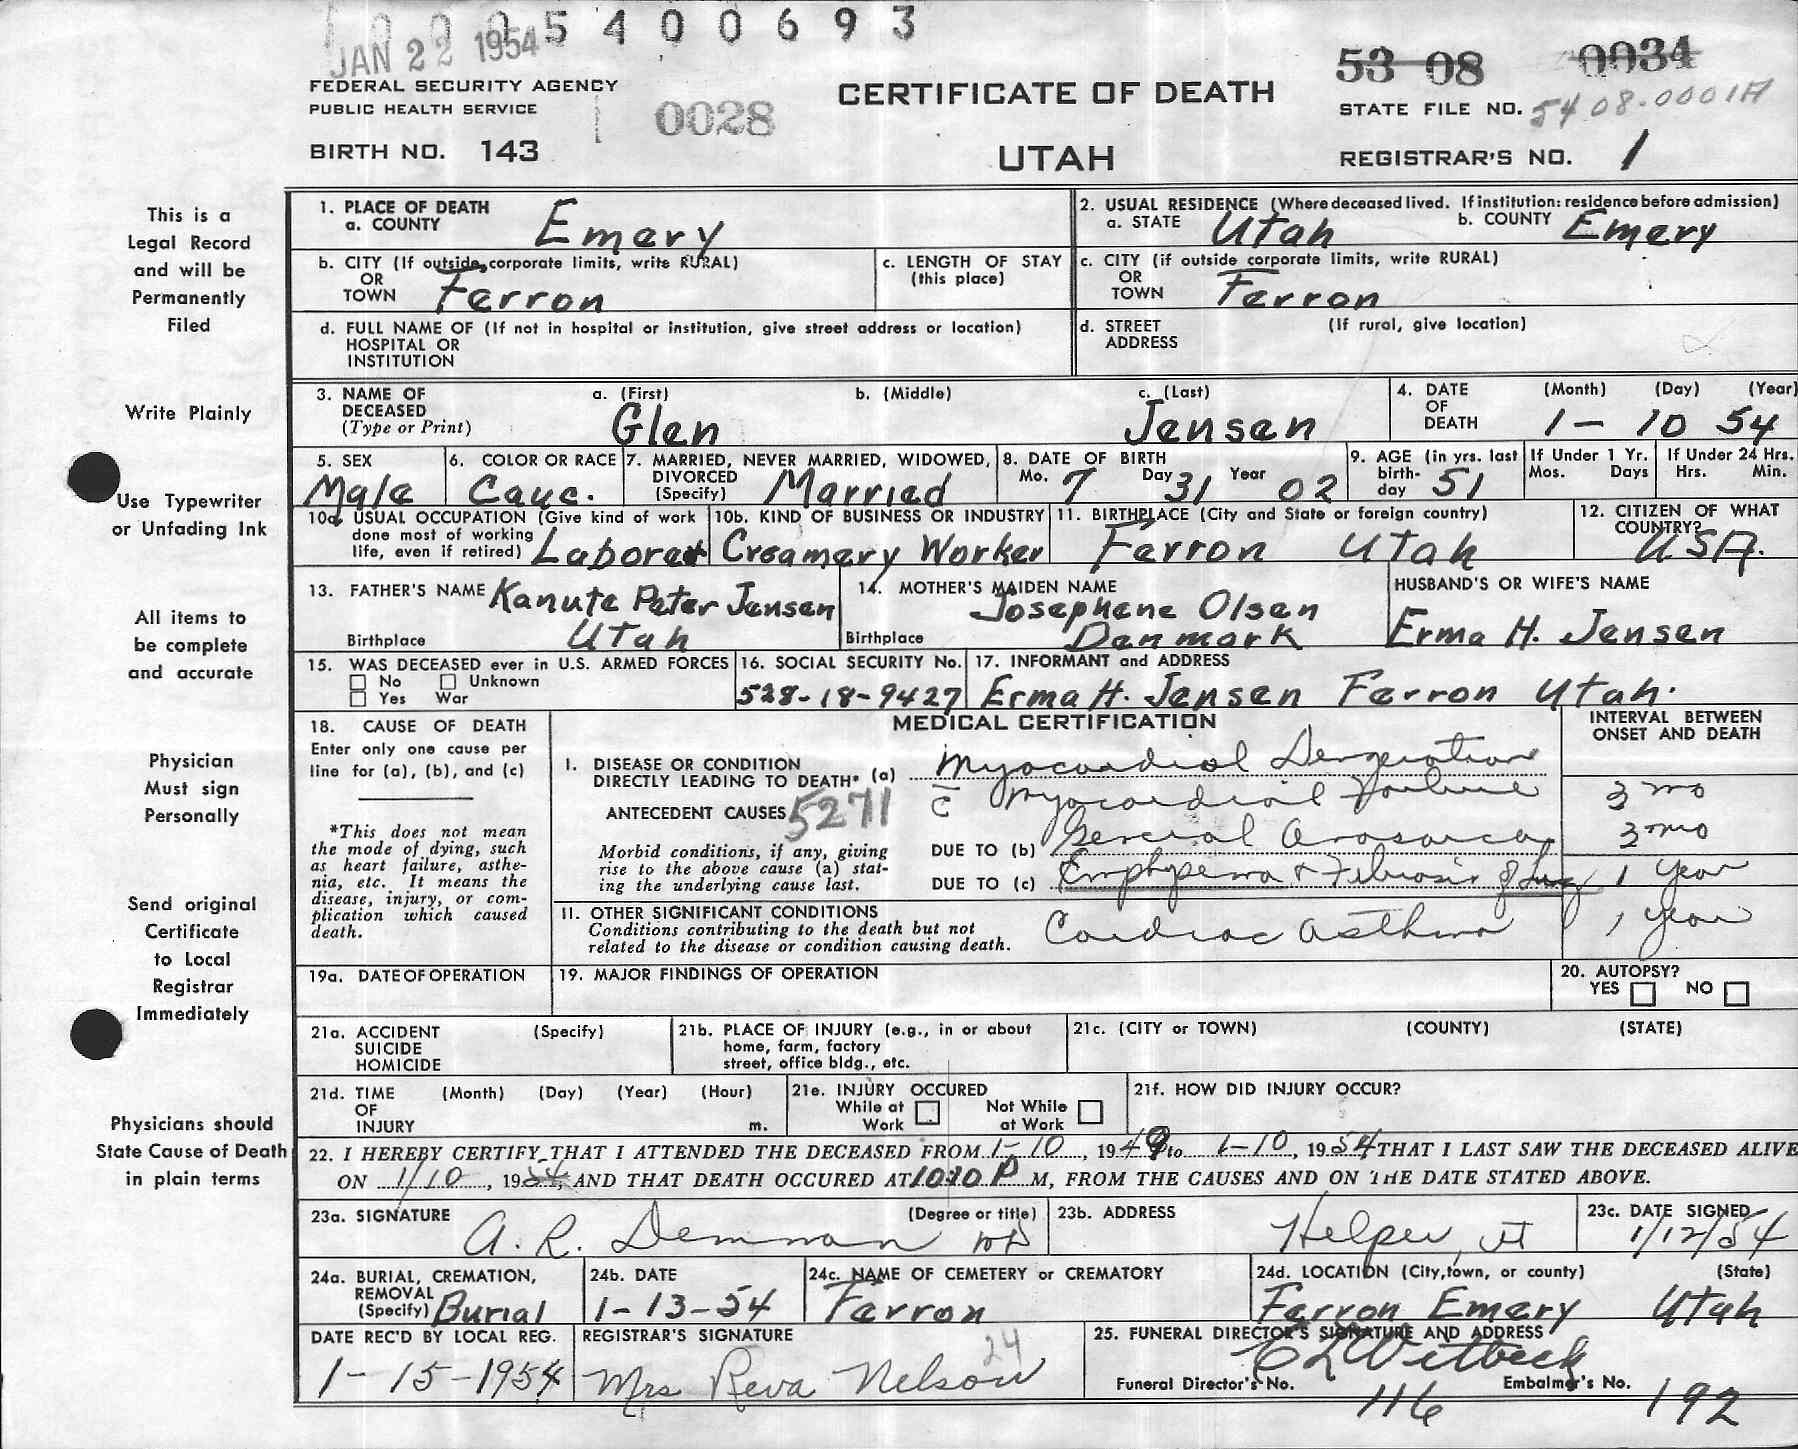 1000 5 4 0 0 6 9 3
JAN 22 1954
53 08 0034
FEDERAL SECURITY AGENCY
PUBLIC HEALTH SERVICE
0028
CERTIFICATE OF DEATH
STATE FILE NO. 5408-0001A
BIRTH NO. 143
UTAH
REGISTRAR'S NO. 1
This is a
Legal Record
and will be
Permanently
Filed
1. PLACE OF DEATH
a. COUNTY Emery
2. USUAL RESIDENCE (Where deceased lived. If institution: residence before admission)
a. STATE Utah b. COUNTY Emery
b. CITY (If outside corporate limits, write RURAL)
OR
TOWN Ferron
c. LENGTH OF STAY
(this place)
c. CITY (if outside corporate limits, write RURAL)
OR
TOWN Ferron
d. FULL NAME OF (If not in hospital or institution, give street address or location)
HOSPITAL OR
INSTITUTION
d. STREET (If rural, give location)
ADDRESS
Write Plainly
3. NAME OF DECEASED
(Type or Print)
a. (First) b. (Middle) c. (Last)
Glen Jensen
4. DATE OF DEATH
(Month) (Day) (Year)
1 - 10 54
Use Typewriter
or Unfading Ink
5. SEX
Male
6. COLOR OR RACE
Cauc.
7. MARRIED, NEVER MARRIED, WIDOWED,
DIVORCED
(Specify) Married
8. DATE OF BIRTH
Mo. 7 Day 31 Year 02
9. AGE (in yrs. last
birth-
day 51
If Under 1 Yr.
Mos. Days
If Under 24 Hrs.
Hrs. Min.
10a USUAL OCCUPATION (Give kind of work
done most of working
life, even if retired) Laborer
10b. KIND OF BUSINESS OR INDUSTRY
Creamery Worker
11. BIRTHPLACE (City and State or foreign country)
Ferron Utah
12. CITIZEN OF WHAT
COUNTRY?
USA.
All items to
be complete
and accurate
13. FATHER'S NAME Kanute Peter Jensen
Birthplace Utah
14. MOTHER'S MAIDEN NAME
Josephene Olsen
Birthplace Denmark
HUSBAND'S OR WIFE'S NAME
Erma H. Jensen
15. WAS DECEASED ever in U.S. ARMED FORCES
No Unknown
Yes War
16. SOCIAL SECURITY No.
528-18-9427
17. INFORMANT and ADDRESS
Erma H. Jensen Ferron Utah.
Physician
Must sign
Personally
Send original
Certificate
to Local
Registrar
Immediately
18. CAUSE OF DEATH
Enter only one cause per
line for (a), (b), and (c)
*This does not mean
the mode of dying, such
as heart failure, asthe-
nia, etc. It means the
disease, injury, or com-
plication which caused
death.
MEDICAL CERTIFICATION
INTERVAL BETWEEN
ONSET AND DEATH
I. DISEASE OR CONDITION
DIRECTLY LEADING TO DEATH* (a) Myocardial
c̄ Myocardial Failure 3 mo
ANTECEDENT CAUSES 5271
Morbid conditions, if any, giving
rise to the above cause (a) stat-
ing the underlying cause last.
DUE TO (b) General Anasarca 3 mo
DUE TO (c) Emphysema & Fibrosis of Lung 1 year
II. OTHER SIGNIFICANT CONDITIONS
Conditions contributing to the death but not
related to the disease or condition causing death.
Cardiac Asthma 1 year
19a. DATE OF OPERATION
19. MAJOR FINDINGS OF OPERATION
20. AUTOPSY?
YES NO
21a. ACCIDENT (Specify)
SUICIDE
HOMICIDE
21b. PLACE OF INJURY (e.g., in or about
home, farm, factory
street, office bldg., etc.
21c. (CITY or TOWN) (COUNTY) (STATE)
21d. TIME (Month) (Day) (Year) (Hour)
OF
INJURY m.
21e. INJURY OCCURED
While at Work
Not While at Work
21f. HOW DID INJURY OCCUR?
Physicians should
State Cause of Death
in plain terms
22. I HEREBY CERTIFY THAT I ATTENDED THE DECEASED FROM 1-10, 1949 to 1-10, 1954 THAT I LAST SAW THE DECEASED ALIVE
ON 1/10, 1954, AND THAT DEATH OCCURED AT 10:10 P M, FROM THE CAUSES AND ON THE DATE STATED ABOVE.
23a. SIGNATURE (Degree or title)
A. R. Demman MD
23b. ADDRESS
Helper, Ut
23c. DATE SIGNED
1/12/54
24a. BURIAL, CREMATION,
REMOVAL
(Specify) Burial
24b. DATE
1-13-54
24c. NAME OF CEMETERY or CREMATORY
Ferron
24d. LOCATION (City, town, or county) (State)
Ferron Emery Utah
DATE REC'D BY LOCAL REG.
1-15-1954
REGISTRAR'S SIGNATURE
24
Mrs Reva Nelson
25. FUNERAL DIRECTOR'S SIGNATURE AND ADDRESS
C L Witbeck
Funeral Director's No. 116
Embalmer's No. 192